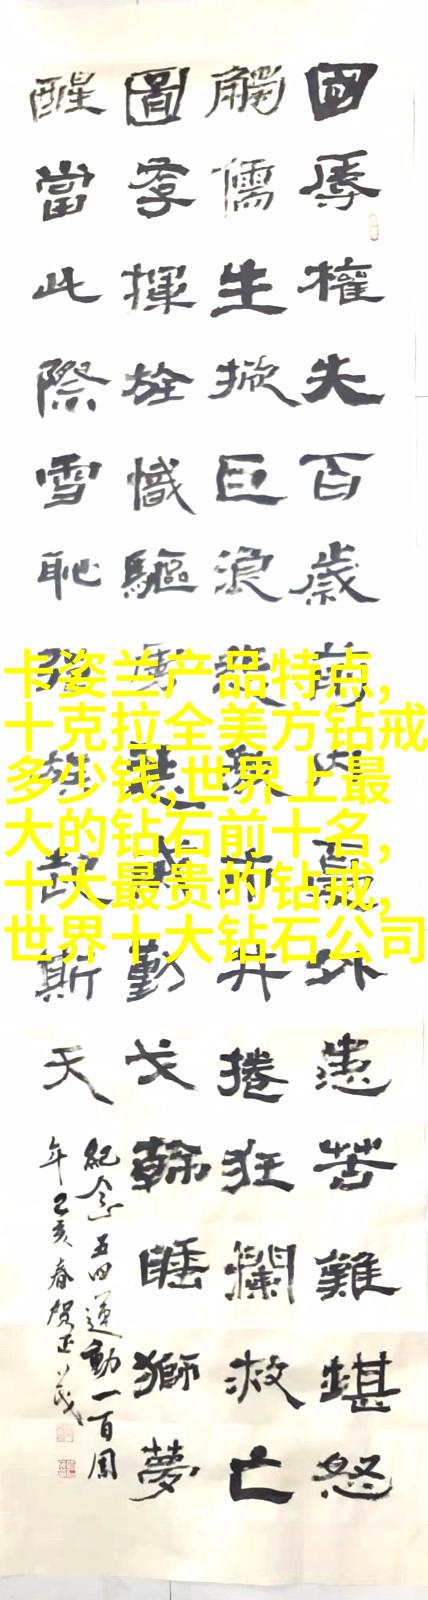 國辱權失百歲前內憂外患苦難堪怒
觸儒生掀巨浪捲狂瀾救亡
圖存揮旌幟驅動戈翰睡獅夢
醒當此際雪恥強雄斯天
紀念五四運動一百周
年己亥春賀正
卡姿兰产品特点,
十克拉全美方钻戒
多少钱,世界上最
大的钻石前十名,
十大最贵的钻戒,
世界十大钻石公司